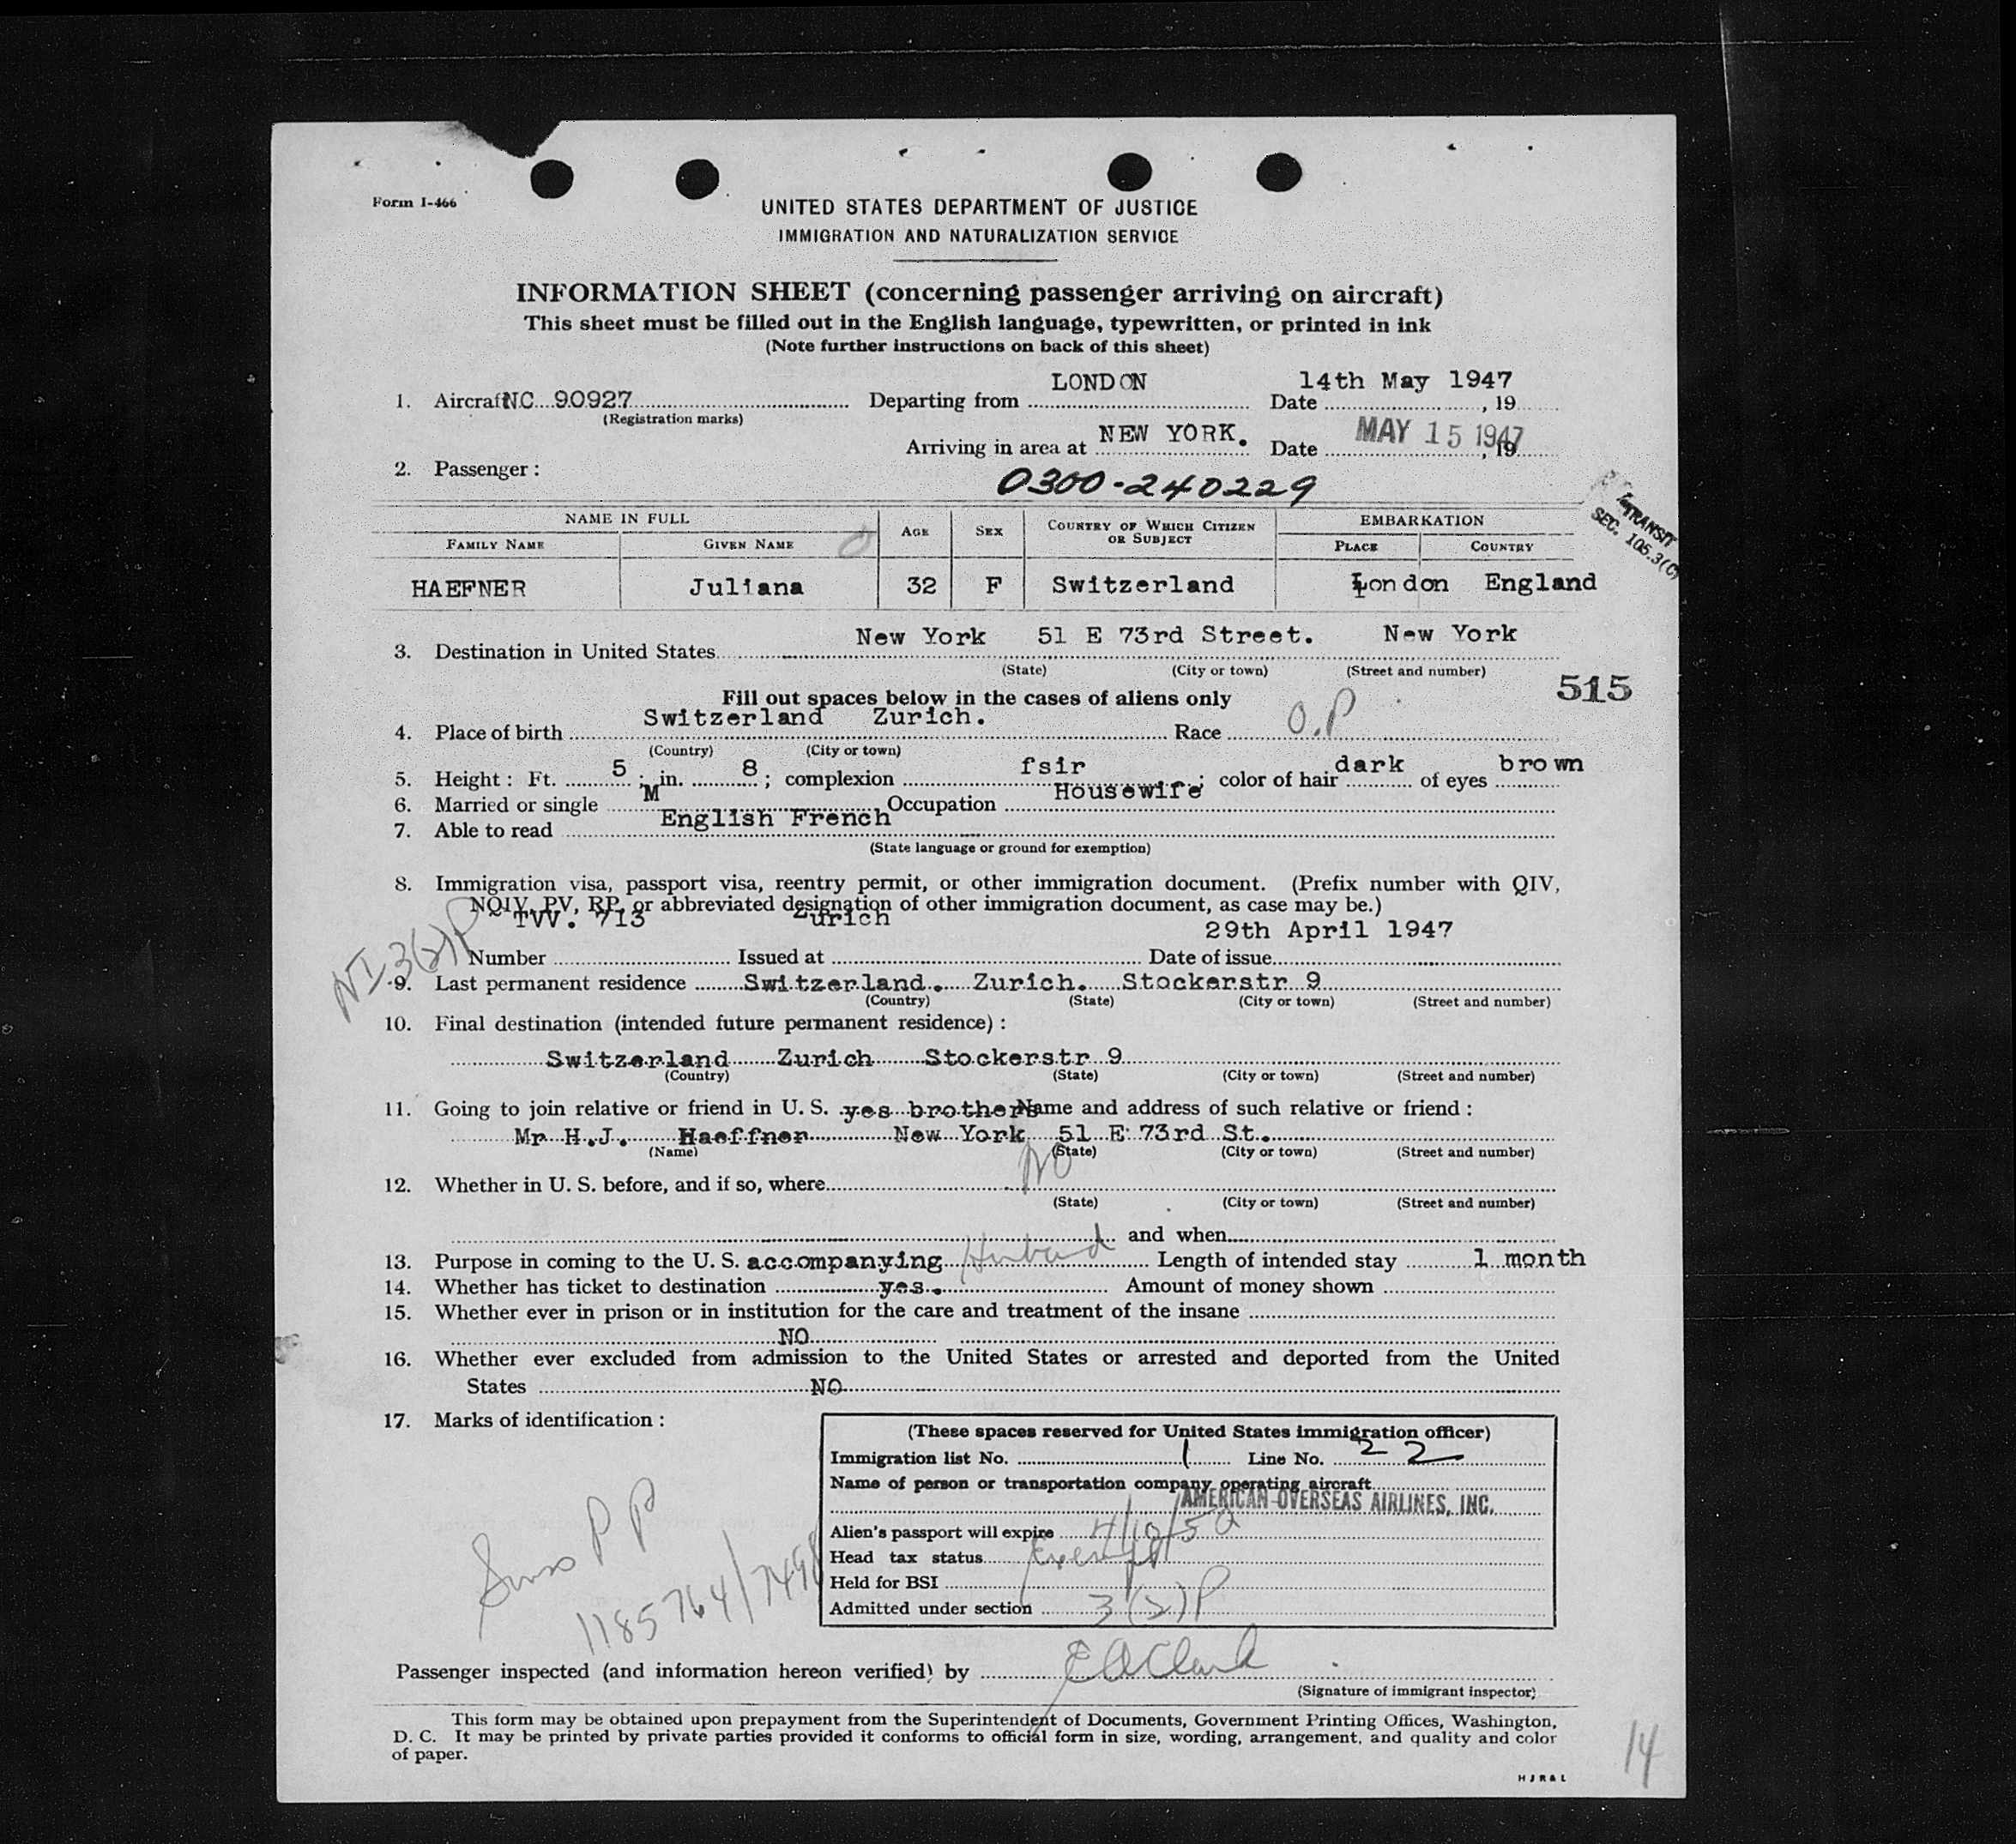 Form I-466
UNITED STATES DEPARTMENT OF JUSTICE
IMMIGRATION AND NATURALIZATION SERVICE
INFORMATION SHEET (concerning passenger arriving on aircraft)
This sheet must be filled out in the English language, typewritten, or printed in ink
(Note further instructions on back of this sheet)
LONDON 14th May 1947
1. Aircraft NC 90927 Departing from Date , 19
(Registration marks)
Arriving in area at NEW YORK. Date MAY 15 1947 , 19
2. Passenger :
0300-240229
TRANSIT
SEC. 105.3(C)
NAME IN FULL AGE SEX COUNTRY OF WHICH CITIZEN OR SUBJECT EMBARKATION
FAMILY NAME GIVEN NAME PLACE COUNTRY
HAEFNER Juliana 32 F Switzerland London England
New York 51 E 73rd Street. New York
3. Destination in United States
(State) (City or town) (Street and number)
515
Fill out spaces below in the cases of aliens only
Switzerland Zurich. O.P
4. Place of birth Race
(Country) (City or town)
5. Height : Ft. 5 ; in. 8 ; complexion fsir ; color of hair dark of eyes brown
6. Married or single M Occupation Housewife
7. Able to read English French
(State language or ground for exemption)
8. Immigration visa, passport visa, reentry permit, or other immigration document. (Prefix number with QIV,
NQIV, PV, RP, or abbreviated designation of other immigration document, as case may be.)
TVV. 713 Zurich 29th April 1947
Number Issued at Date of issue
NI 3(2)P
9. Last permanent residence Switzerland. Zurich. Stockerstr 9
(Country) (State) (City or town) (Street and number)
10. Final destination (intended future permanent residence) :
Switzerland Zurich Stockerstr 9
(Country) (State) (City or town) (Street and number)
11. Going to join relative or friend in U. S. yes brothers Name and address of such relative or friend :
Mr H.J. Haeffner New York 51 E 73rd St.
(Name) (State) (City or town) (Street and number)
12. Whether in U. S. before, and if so, where NO
(State) (City or town) (Street and number)
and when
13. Purpose in coming to the U. S. accompanying Husband Length of intended stay 1 month
14. Whether has ticket to destination yes. Amount of money shown
15. Whether ever in prison or in institution for the care and treatment of the insane
NO
16. Whether ever excluded from admission to the United States or arrested and deported from the United
States NO
17. Marks of identification :
(These spaces reserved for United States immigration officer)
Immigration list No. 1 Line No. 22
Name of person or transportation company operating aircraft
AMERICAN OVERSEAS AIRLINES, INC.
Alien's passport will expire 4/10/50
Head tax status Exempt
Held for BSI
Admitted under section 3(2)P
Swiss PP
1185764/7498
Passenger inspected (and information hereon verified) by E A Clark
(Signature of immigrant inspector)
This form may be obtained upon prepayment from the Superintendent of Documents, Government Printing Offices, Washington,
D. C. It may be printed by private parties provided it conforms to official form in size, wording, arrangement, and quality and color
of paper.
HJR&L
14